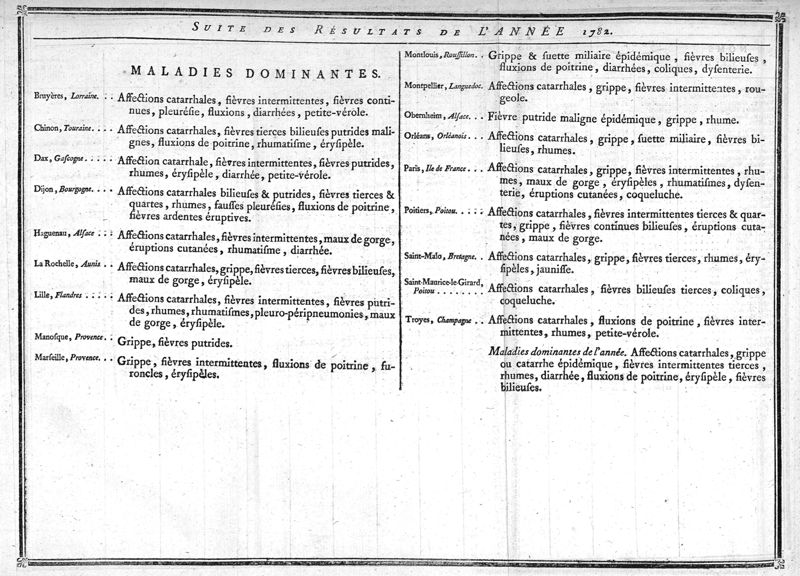 SUITE DES RÉSULTATS DE L'ANNÉE 1782.
MALADIES DOMINANTES.
Bruyères, Lorraine. . . Affections catarrhales, fièvres intermittentes, fièvres conti-
nues, pleuréſie, fluxions, diarrhées, petite-vérole.
Chinon, Touraine. . . . Affections catarrhales, fièvres tierces bilieuſes putrides mali-
gnes, fluxions de poitrine, rhumatiſme, éryſipèle.
Dax, Gaſcogne. . . . . . Affection catarrhale, fièvres intermittentes, fièvres putrides,
rhumes, éryſipèle, diarrhée, petite-vérole.
Dijon, Bourgogne. . . . Affections catarrhales bilieuſes & putrides, fièvres tierces &
quartes, rhumes, fauſſes pleuréſies, fluxions de poitrine,
fièvres ardentes éruptives.
Haguenau, Alſace . . . Affections catarrhales, fièvres intermittentes, maux de gorge,
éruptions cutanées, rhumatiſme, diarrhée.
La Rochelle, Aunis . . Affections catarrhales, grippe, fièvres tierces, fièvres bilieuſes,
maux de gorge, éryſipèle.
Lille, Flandres . . . . . . Affections catarrhales, fièvres intermittentes, fièvres putri-
des, rhumes, rhumatiſmes, pleuro-péripneumonies, maux
de gorge, éryſipèle.
Manosque, Provence. . . Grippe, fièvres putrides.
Marſeille, Provence. . . . Grippe, fièvres intermittentes, fluxions de poitrine, fu-
roncles, éryſipèles.
Montlouis, Rouſſillon. . Grippe & ſuette miliaire épidémique, fièvres bilieuſes,
fluxions de poitrine, diarrhées, coliques, dyſenterie.
Montpellier, Languedoc. Affections catarrhales, grippe, fièvres intermittentes, rou-
geole.
Obernheim, Alſace. . . Fièvre putride maligne épidémique, grippe, rhume.
Orléans, Orléanois. . . Affections catarrhales, grippe, ſuette miliaire, fièvres bi-
lieuſes, rhumes.
Paris, Ile de France. . . Affections catarrhales, grippe, fièvres intermittentes, rhu-
mes, maux de gorge, éryſipèles, rhumatiſmes, dyſen-
terie, éruptions cutanées, coqueluche.
Poitiers, Poitou. . . . . Affections catarrhales, fièvres intermittentes tierces & quar-
tes, grippe, fièvres continues bilieuſes, éruptions cuta-
nées, maux de gorge.
Saint-Malo, Bretagne. . Affections catarrhales, grippe, fièvres tierces, rhumes, éry-
ſipèles, jauniſſe.
Saint-Maurice-le-Girard,
Poitou . . . . . . . . Affections catarrhales, fièvres bilieuſes tierces, coliques,
coqueluche.
Troyes, Champagne . . Affections catarrhales, fluxions de poitrine, fièvres inter-
mittentes, rhumes, petite-vérole.
Maladies dominantes de l'année. Affections catarrhales, grippe
ou catarrhe épidémique, fièvres intermittentes tierces,
rhumes, diarrhée, fluxions de poitrine, éryſipèle, fièvres
bilieuſes.